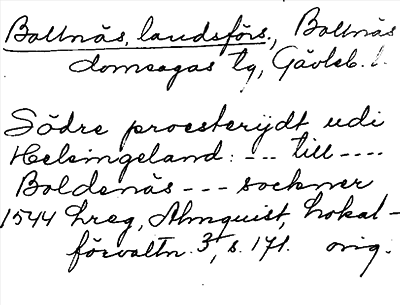 Bollnäs, landsförs., Bollnäs
domsagas tg, Gävleb. l.
Södre proesterijdt udi
Helsingeland: --- till ----
Boldenäs --- sockner
1544 hreg, Almquist, Lokal-
förvaltn. 3, s. 171. orig.